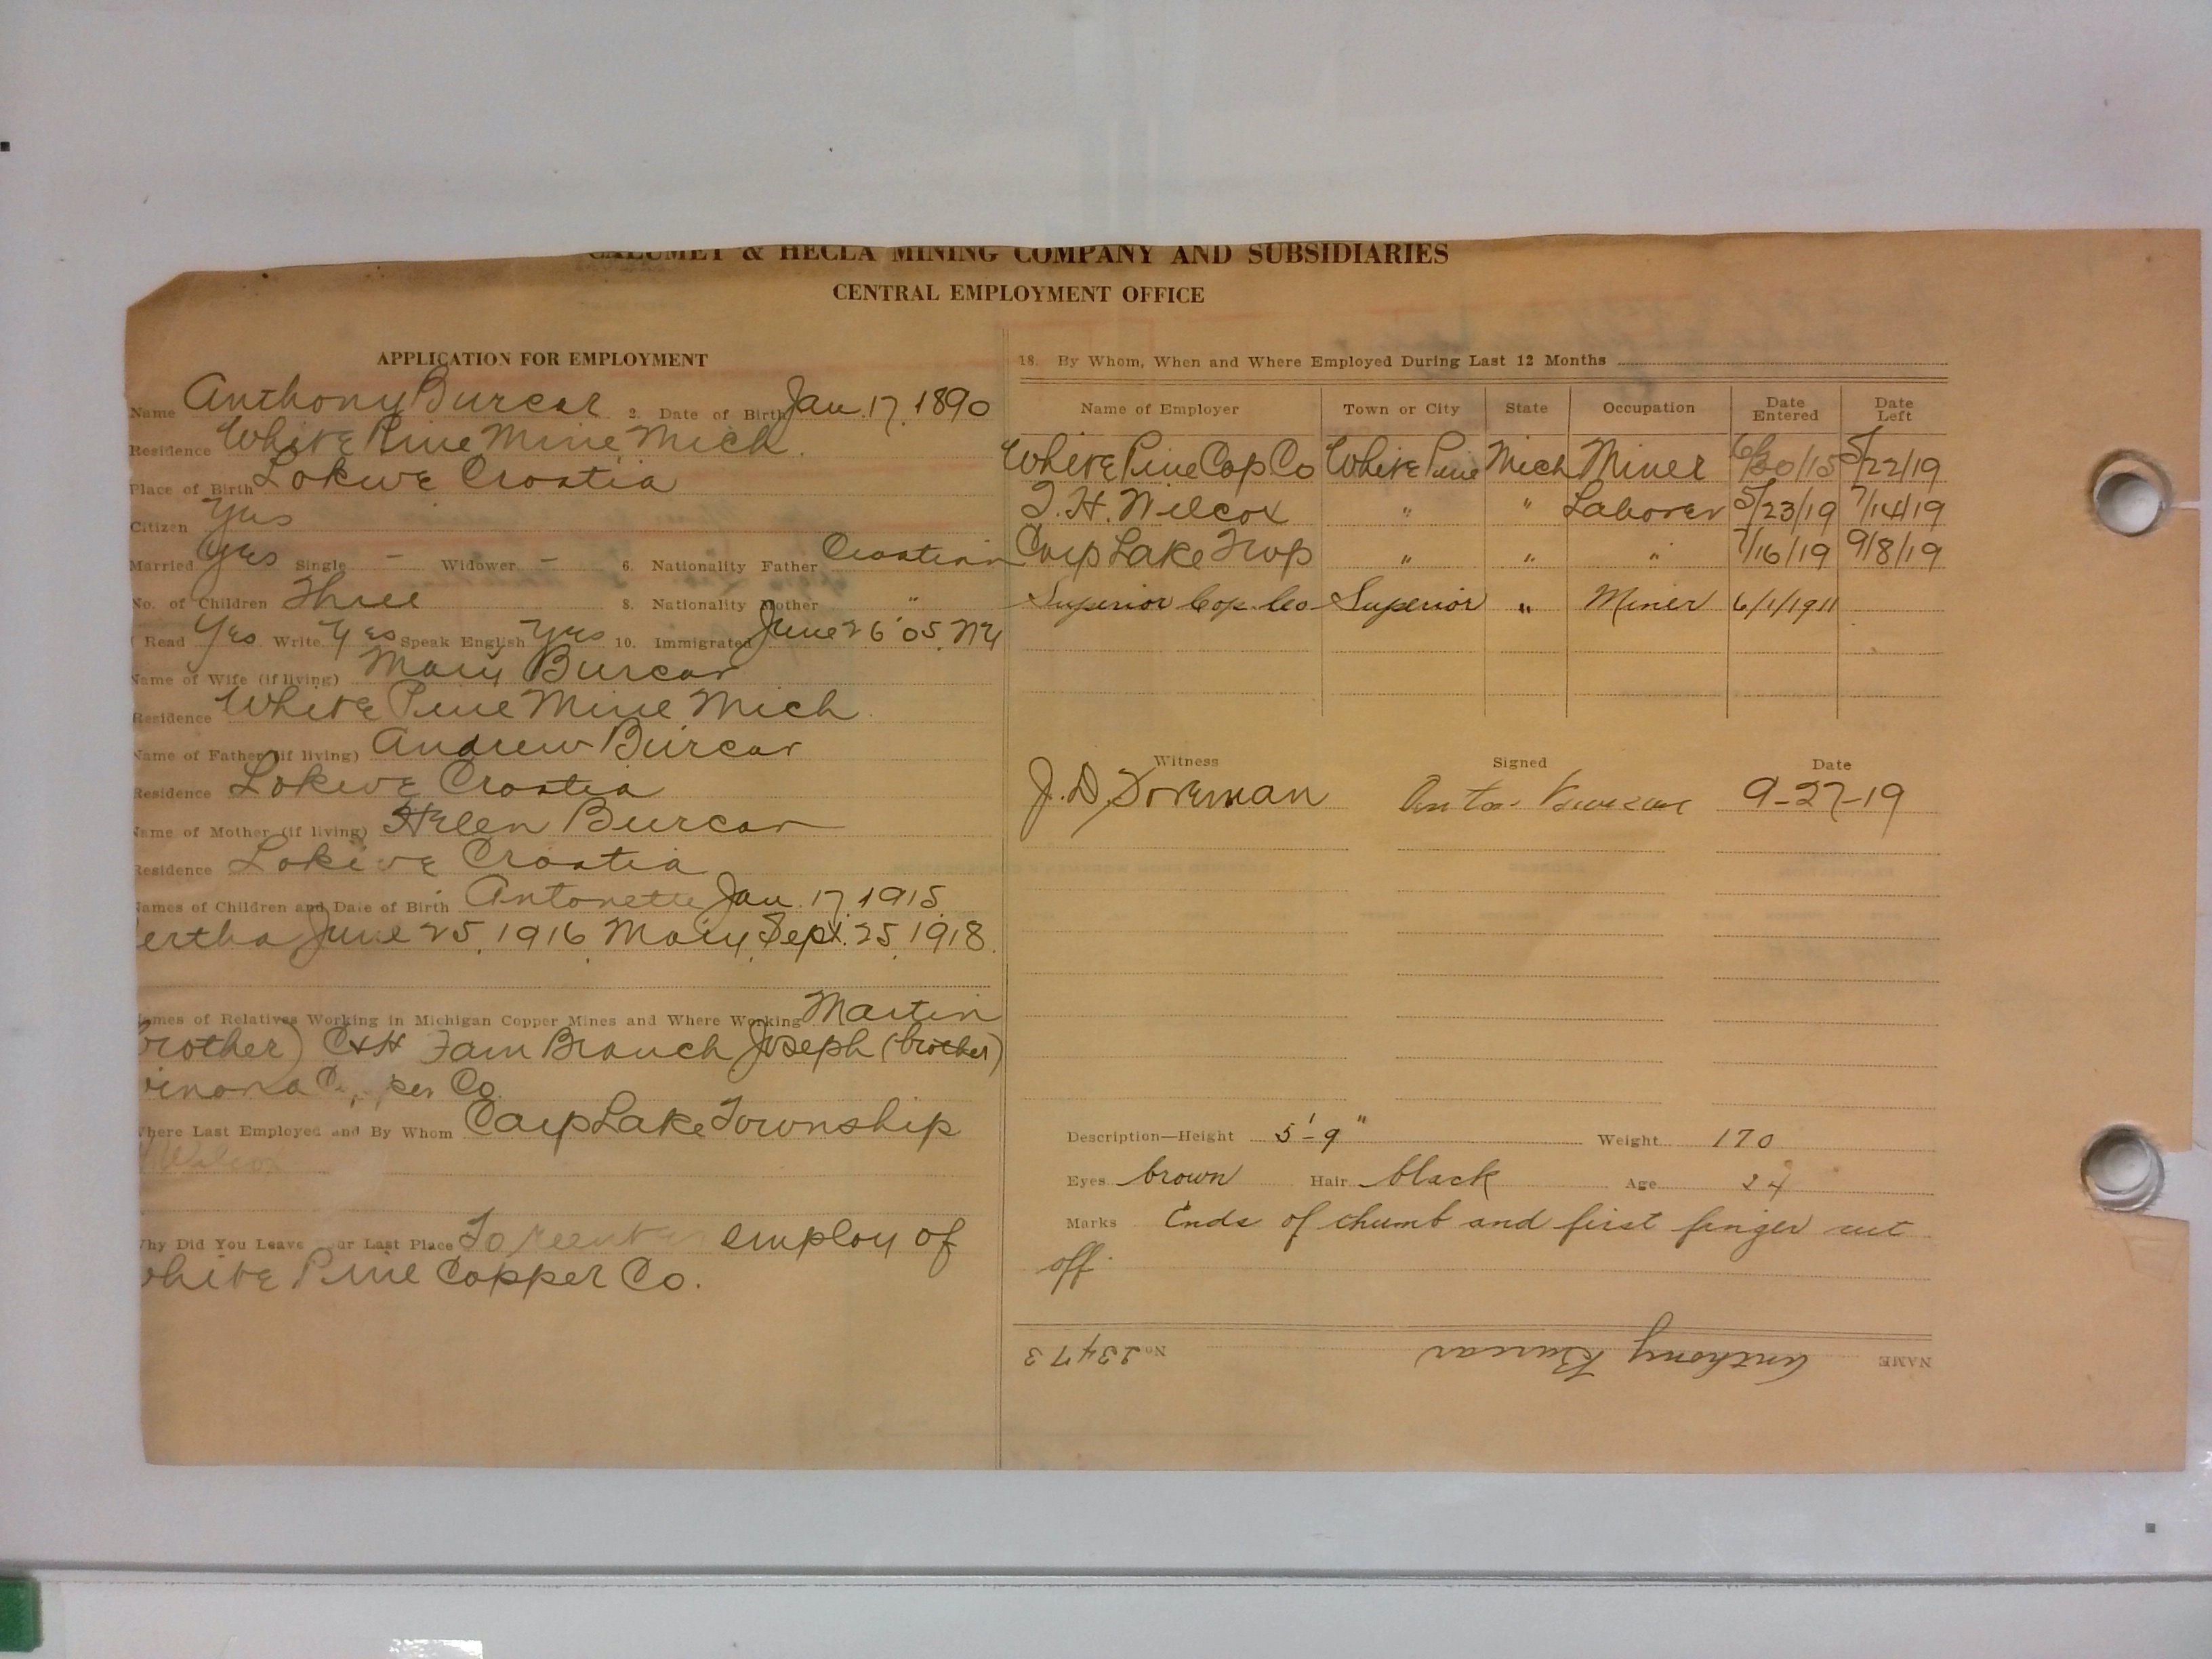 CALUMET & HECLA MINING COMPANY AND SUBSIDIARIES
CENTRAL EMPLOYMENT OFFICE
APPLICATION FOR EMPLOYMENT
Name Anthony Burcar 2. Date of Birth Jan. 17, 1890
Residence White Pine Mine Mich.
Place of Birth Lokive Croatia
Citizen Yes
Married Yes Single – Widower – 6. Nationality Father Croatian
No. of Children Three 8. Nationality Mother "
Read Yes Write Yes Speak English Yes 10. Immigrated June 26 '05, NY
Name of Wife (if living) Mary Burcar
Residence White Pine Mine Mich.
Name of Father (if living) Andrew Burcar
Residence Lokive Croatia
Name of Mother (if living) Helen Burcar
Residence Lokive Croatia
Names of Children and Date of Birth Antonette Jan. 17, 1915
ertha June 25, 1916, Mary, Sept. 25, 1918.
ames of Relatives Working in Michigan Copper Mines and Where Working Martin
rother) C&H Tam Branch Joseph (brother)
inona C per Co.
here Last Employed and By Whom Carp Lake Township
Wilcox
hy Did You Leave ur Last Place To reenter employ of
hite Pine Copper Co.
18. By Whom, When and Where Employed During Last 12 Months
Name of Employer Town or City State Occupation Date Entered Date Left
White Pine Cop Co White Pine Mich Miner 6/30/15 5/22/19
T. H. Wilcox " " Laborer 5/23/19 7/14/19
Carp Lake Twp " " " 7/16/19 9/8/19
Superior Cop. Co Superior " Miner 6/1/1911
Witness Signed Date
J. D. Doreman Anton Burcar 9-27-19
Description—Height 5'-9" Weight 170
Eyes brown Hair black Age 24
Marks Ends of thumb and first finger cut
off
NAME Anthony Burcar No. 23473